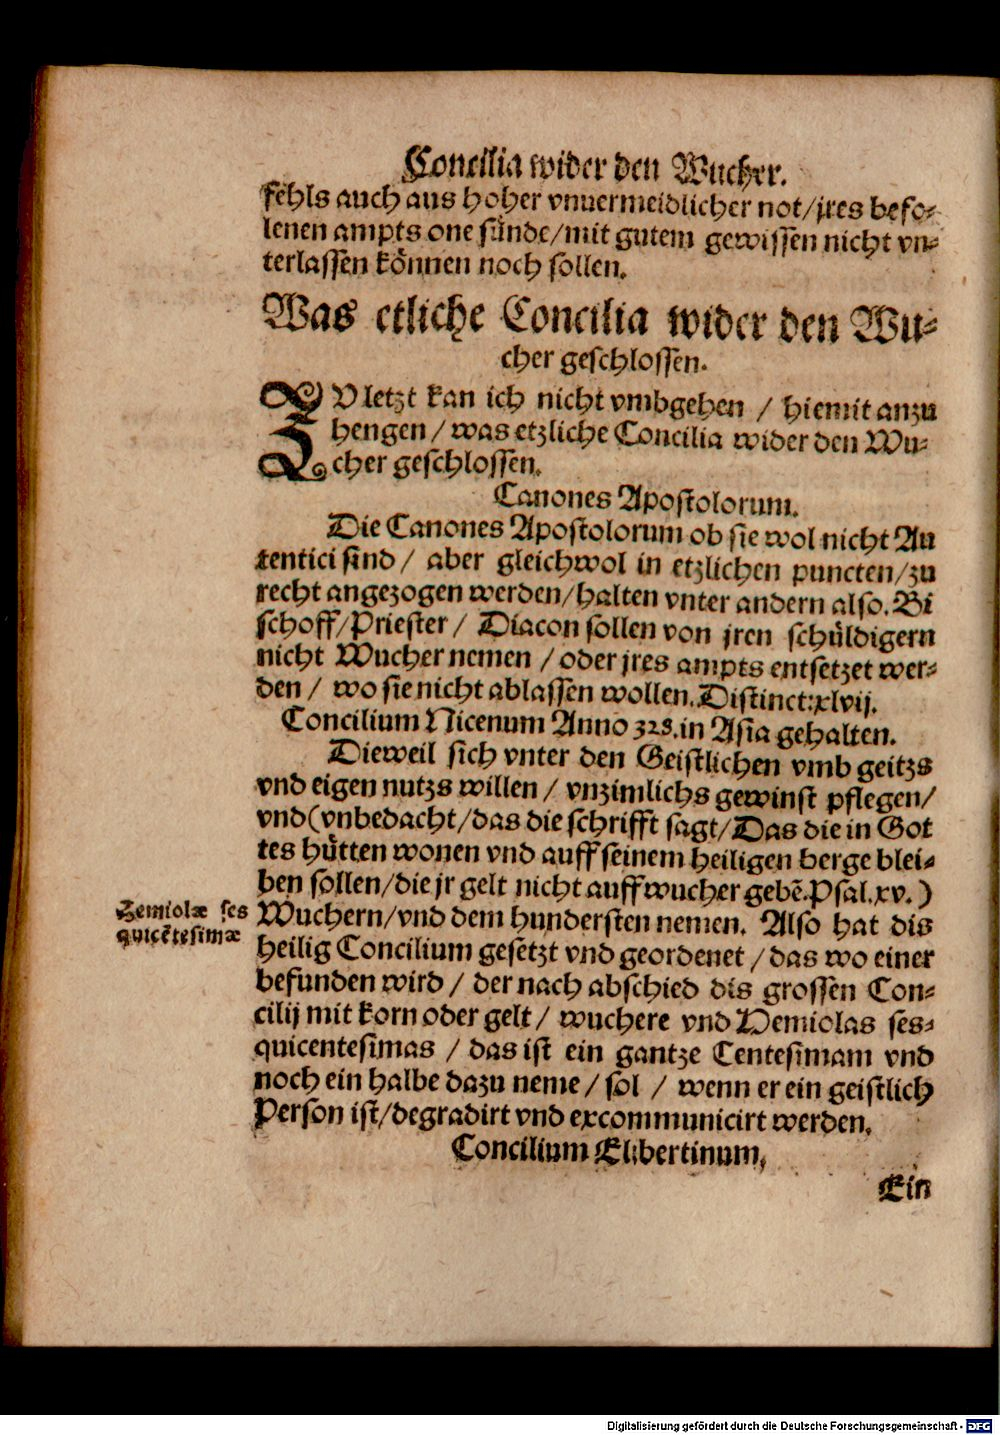 Concilia wider den Wucher.
fehls auch aus hoher vnuermeidlicher not/jres befo-
lenen ampts one sünde/mit gutem gewissen nicht vn-
terlassen können noch sollen.
Was etliche Concilia wider den Wu-
cher geschlossen.
ZVletzt kan ich nicht vmbgehen / hiemit anzu
hengen / was etzliche Concilia wider den Wu-
cher geschlossen.
Canones Apostolorum.
Die Canones Apostolorum ob sie wol nicht Au
tentici sind / aber gleichwol in etzlichen puncten/zu
recht angezogen werden/halten vnter andern also. Bi
schoff/Priester / Diacon sollen von jren schüldigern
nicht Wucher nemen / oder jres ampts entsetzet wer-
den / wo sie nicht ablassen wollen. Distinct:xlvij.
Concilium Nicenum Anno 328. in Asia gehalten.
Dieweil sich vnter den Geistlichen vmb geitzs
vnd eigen nutzs willen / vnzimlichs gewinst pflegen/
vnd (vnbedacht/das die schrifft sagt/Das die in Got
tes hütten wonen vnd auff seinem heiligen berge blei-
ben sollen/die jr gelt nicht auff wucher gebē. Psal.xv.)
Hemiolæ ses
quicētesimæ
Wuchern/vnd dem hundersten nemen. Also hat dis
heilig Concilium gesetzt vnd geordenet / das wo einer
befunden wird / der nach abschied dis grossen Con-
cilij mit korn oder gelt / wuchere vnd Hemiolas ses-
quicentesimas / das ist ein gantze Centesimam vnd
noch ein halbe dazu neme / sol / wenn er ein geistlich
Person ist/degradirt vnd excommunicirt werden.
Concilium Elibertinum.
Ein
Digitalisierung gefördert durch die Deutsche Forschungsgemeinschaft - DFG